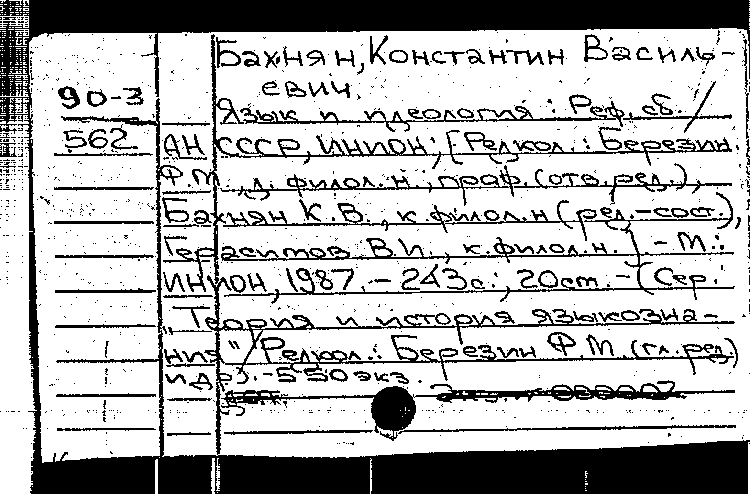 Бахнян, Константин Василь-
евич.
90-3
Язык и идеология : Реф. сб. /
562
АН СССР, ИНИОН; [Редкол.: Березин.
Ф.М., д. филол. н., проф. (отв. ред.),
Бахнян К.В., к филол. н (ред.-сост.),
Герасимов В.И., к. филол. н.] - М.:
ИНИОН, 1987. - 243 с.; 20 см. - (Сер.
"Теория и история языкозна-
ния" / Редкол.: Березин Ф.М. (гл. ред)
и др). - 550 экз.